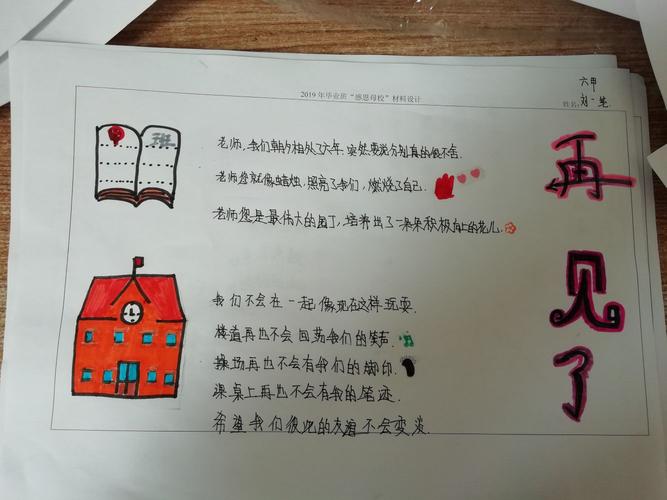 2019年毕业班“感恩母校”材料设计
六甲
姓名:刘一笔
班
老师,我们朝夕相处了六年,突然要说分别真的很不舍.
老师您就像蜡烛,照亮了我们,燃烧了自己.
老师您是最伟大的园丁,培养出了一朵朵积极向上的花儿.
再见了
我们不会在一起像现在这样玩耍.
楼道再也不会回荡我们的笑声.
操场再也不会有我们的脚印.
课桌上再也不会有我的笔迹.
希望我们彼此的友谊不会变淡.